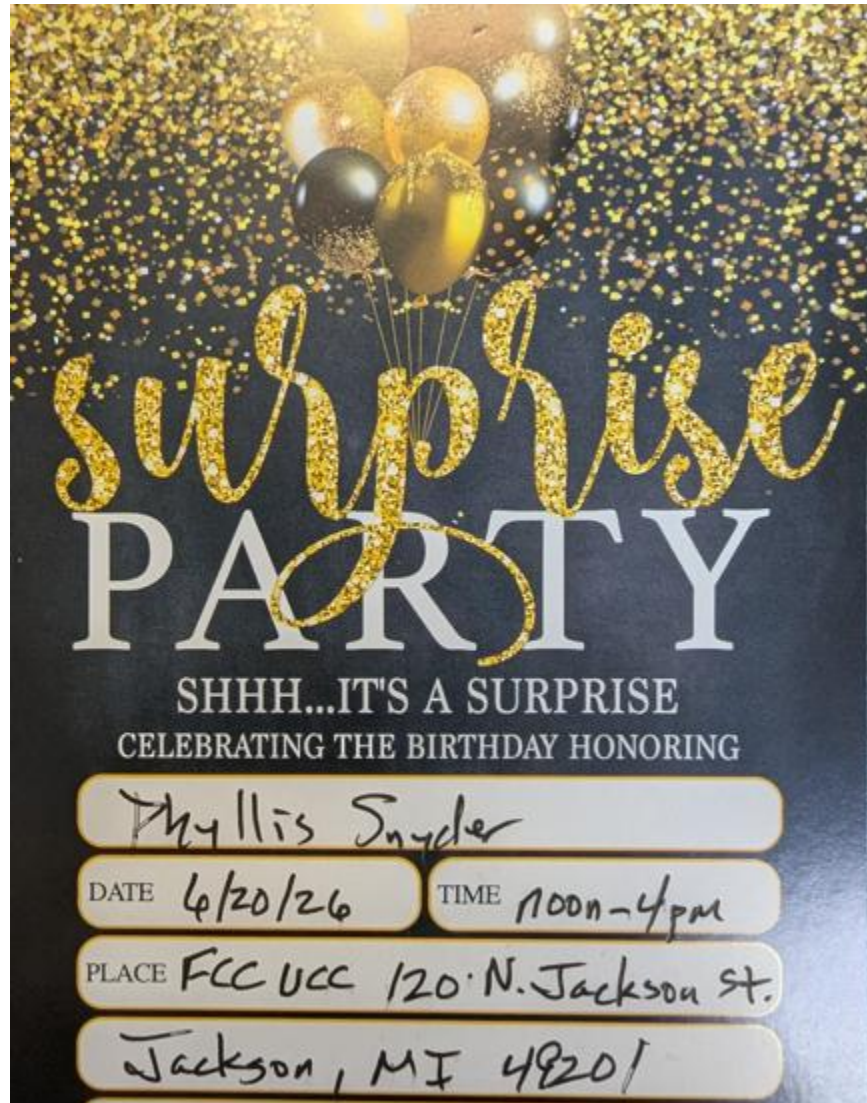 surprise
PARTY
SHHH...IT'S A SURPRISE
CELEBRATING THE BIRTHDAY HONORING
Phyllis Snyder
DATE 6/20/26 TIME noon-4pm
PLACE FCC UCC 120 N. Jackson St.
Jackson, MI 49201